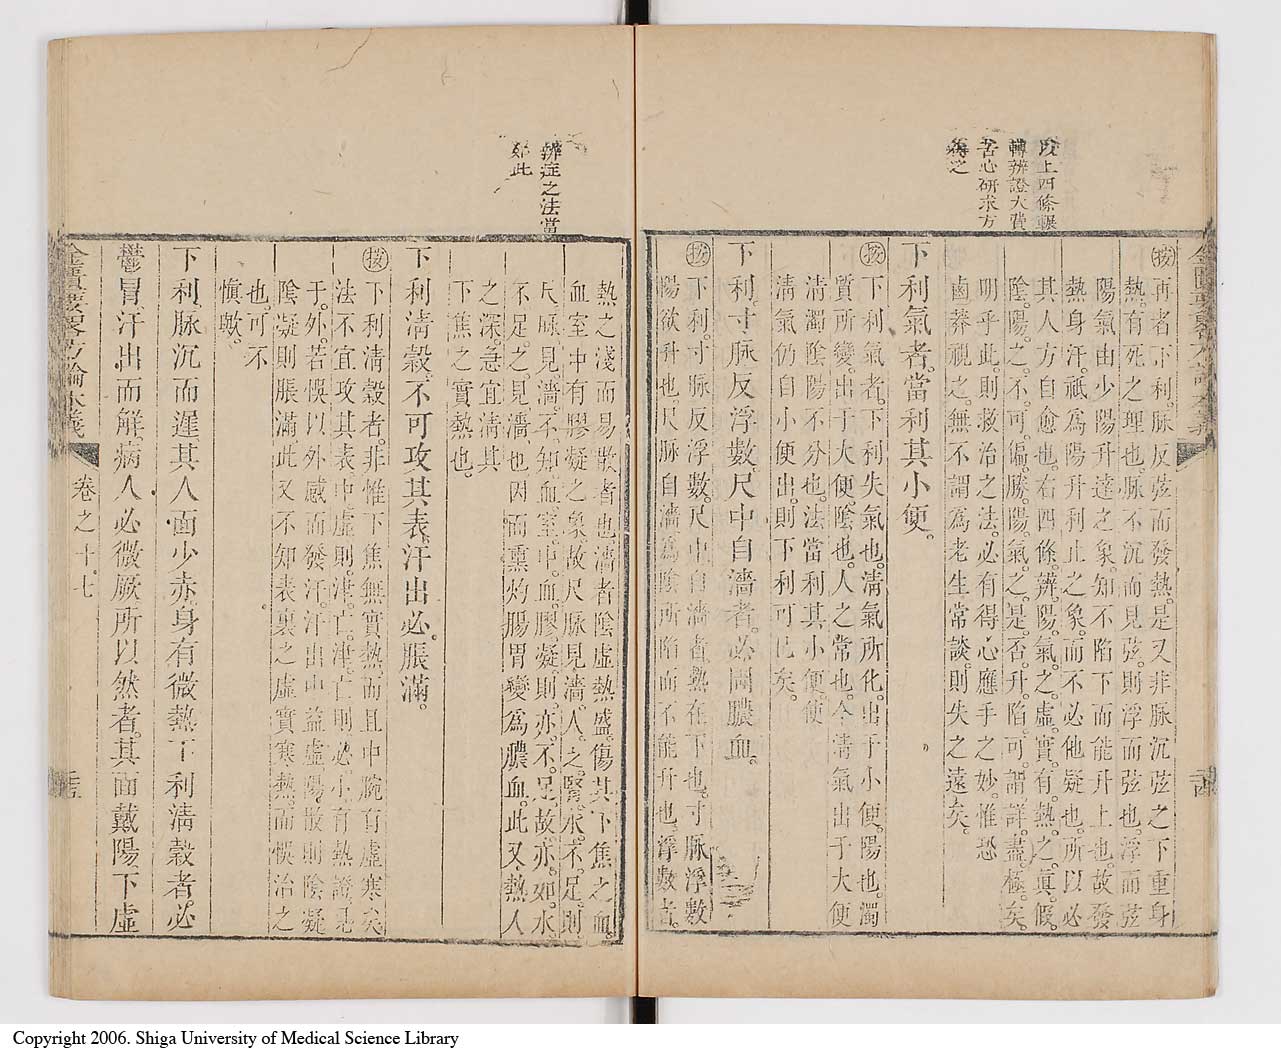 以上四條輾
轉辨證大費
苦心研求方
得之
按再者下利脉反弦而發熱是又非脉沉弦之下重身
熱有死之理也脉不沉而見弦則浮而弦也浮而弦
陽氣由少陽升達之象知不陷下而能升上也故發
熱身汗祇為陽升利止之象而不必他疑也所以必
其人方自愈也右四條辨陽氣之虛實有熱之真假
陰陽之不可偏勝陽氣之是否升陷可謂詳盡極矣
明乎此則救治之法必有得心應手之妙惟恐
鹵莽視之無不謂爲老生常談則失之遠矣
下利氣者當利其小便
按下利氣者下利失氣也清氣所化出于小便陽也濁
質所變出于大便陰也人之常也今清氣出于大便
清濁陰陽不分也法當利其小便使
清氣仍自小便出則下利可已矣
下利寸脉反浮數尺中自濇者必圊膿血
按下利寸脉反浮數尺中自濇者熱在下也寸脉浮數
陽欲升也尺脉自濇為陰所陷而不能升也浮數者
辨症之法當
如此
熱之淺而易散者也濇者陰虛熱盛傷其下焦之血
血室中有膠凝之象故尺脉見濇人之腎水不足則
尺脉見濇不知血室中血膠凝則亦不足故亦如水
不足之見濇也因而熏灼腸胃變爲膿血此又熱入
之深急宜清其
下焦之實熱也
下利清穀不可攻其表汗出必脹滿
按下利清穀者非惟下焦無實熱而且中脘有虛寒矣
法不宜攻其表中虛則津亡津亡則必小有熱證見
于外若悞以外感而發汗汗出中益虛陽散則陰凝
陰凝則脹滿此又不知表裏之虛實寒熱而悞治之
也可不
愼歟
下利脉沉而遲其人面少赤身有微熱下利清穀者必
鬱冒汗出而解病人必微厥所以然者其面戴陽下虛
卷之十七